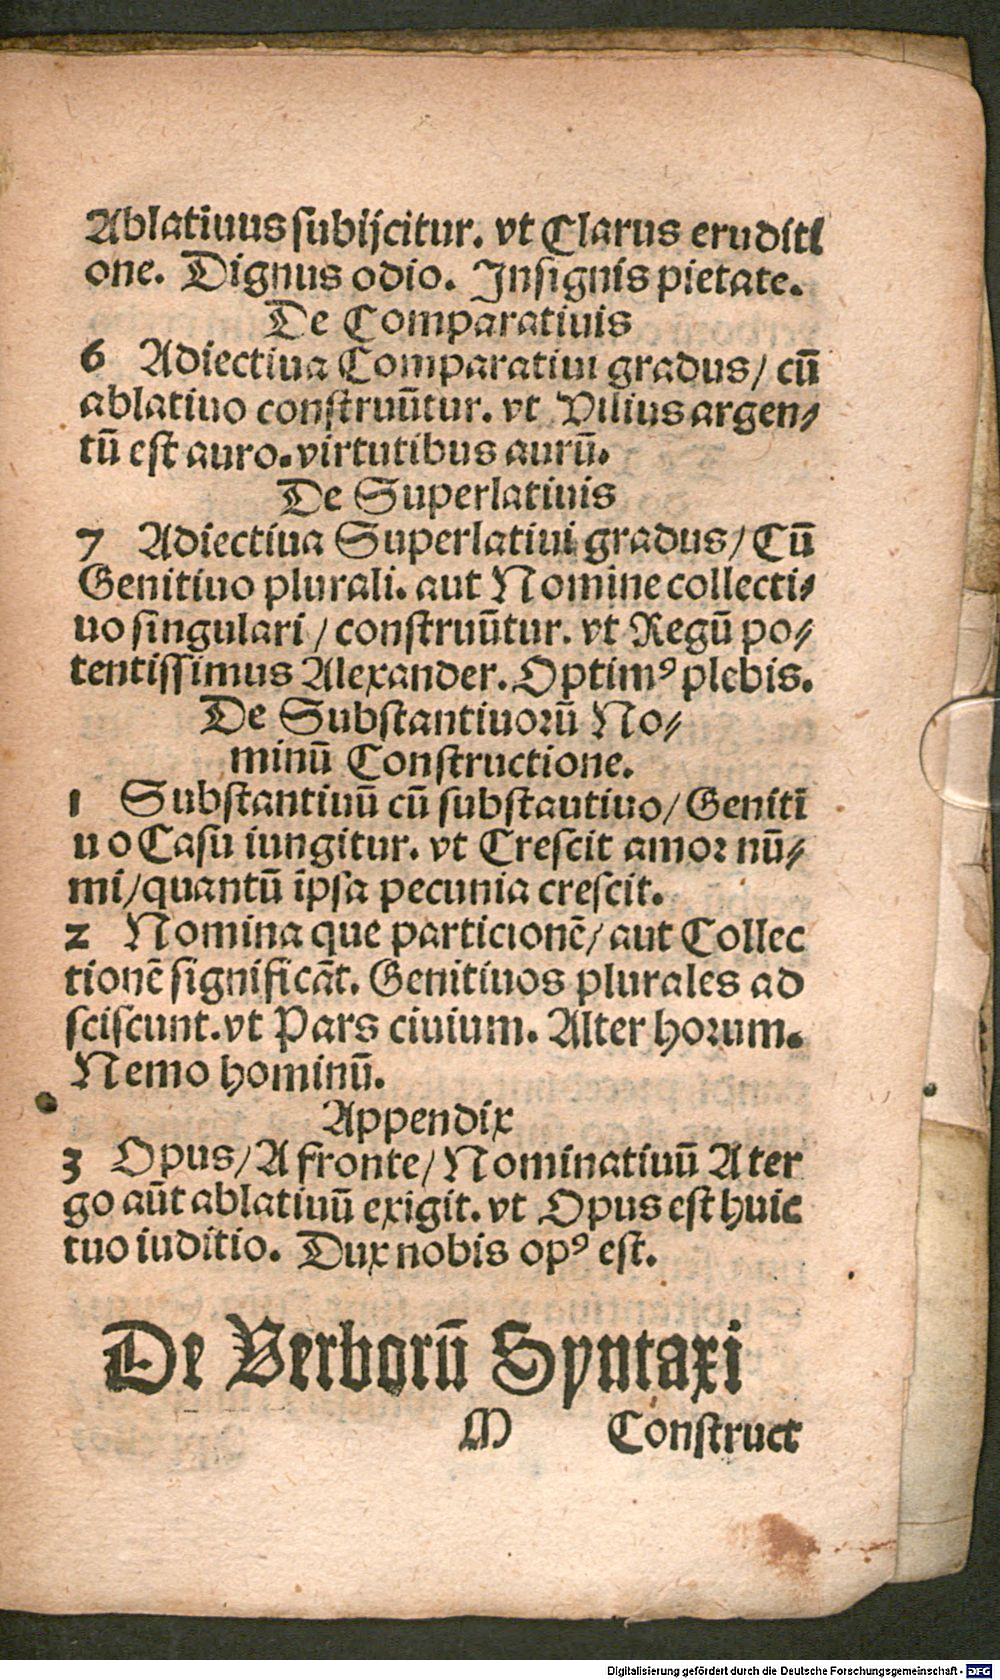 Ablatiuus subijcitur. vt Clarus eruditi
one. Dignus odio. Insignis pietate.
De Comparatiuis
6 Adiectiua Comparatiui gradus/ cū
ablatiuo construūtur. vt Vilius argen⸗
tū est auro. virtutibus aurū.
De Superlatiuis
7 Adiectiua Superlatiui gradus/ Cū
Genitiuo plurali. aut Nomine collecti⸗
uo singulari / construūtur. vt Regū po⸗
tentissimus Alexander. Optimꝰ plebis.
De Substantiuorū No⸗
minū Constructione.
1 Substantiuū cū substautiuo/ Genitī
uo Casu iungitur. vt Crescit amor nū⸗
mi/quantū ipsa pecunia crescit.
2 Nomina que particionē/ aut Collec
tionē significāt. Genitiuos plurales ad
sciscunt. vt Pars ciuium. Alter horum.
Nemo hominū.
Appendix
3 Opus/ A fronte/ Nominatiuū A ter
go aūt ablatiuū exigit. vt Opus est huic
tuo iuditio. Dux nobis opꝰ est.
De Verborū Syntaxi
M Construct
Digitalisierung gefördert durch die Deutsche Forschungsgemeinschaft - DFG